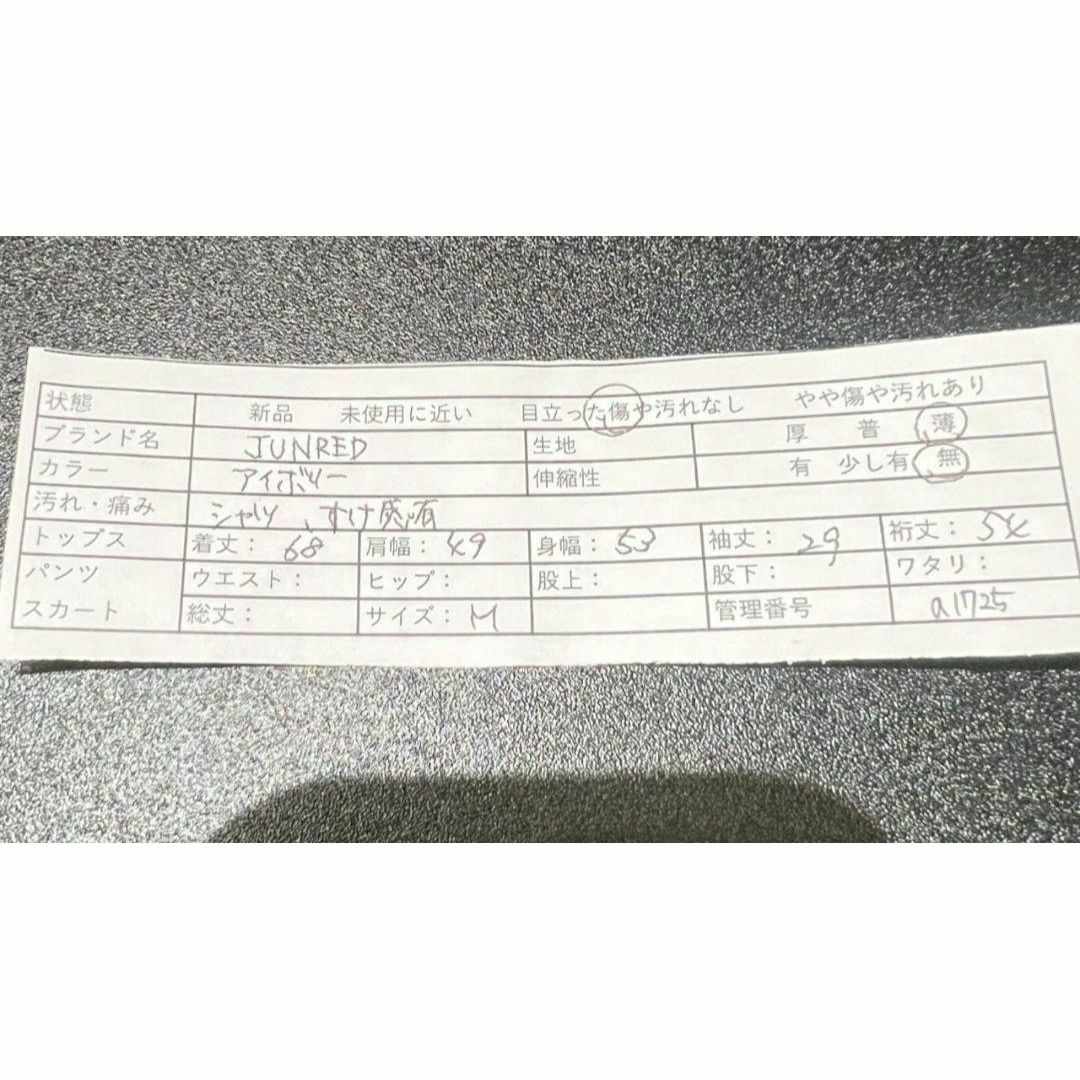 状態 新品 未使用に近い 目立った傷や汚れなし やや傷や汚れあり
ブランド名 JUNRED 生地 厚 普 薄
カラー アイボリー 伸縮性 有 少し有 無
汚れ・痛み シャツ、すけ感有
トップス 着丈： 68 肩幅： 49 身幅： 53 袖丈： 29 裄丈： 54
パンツ ウエスト： ヒップ： 股上： 股下： ワタリ：
スカート 総丈： サイズ： M 管理番号 a1725